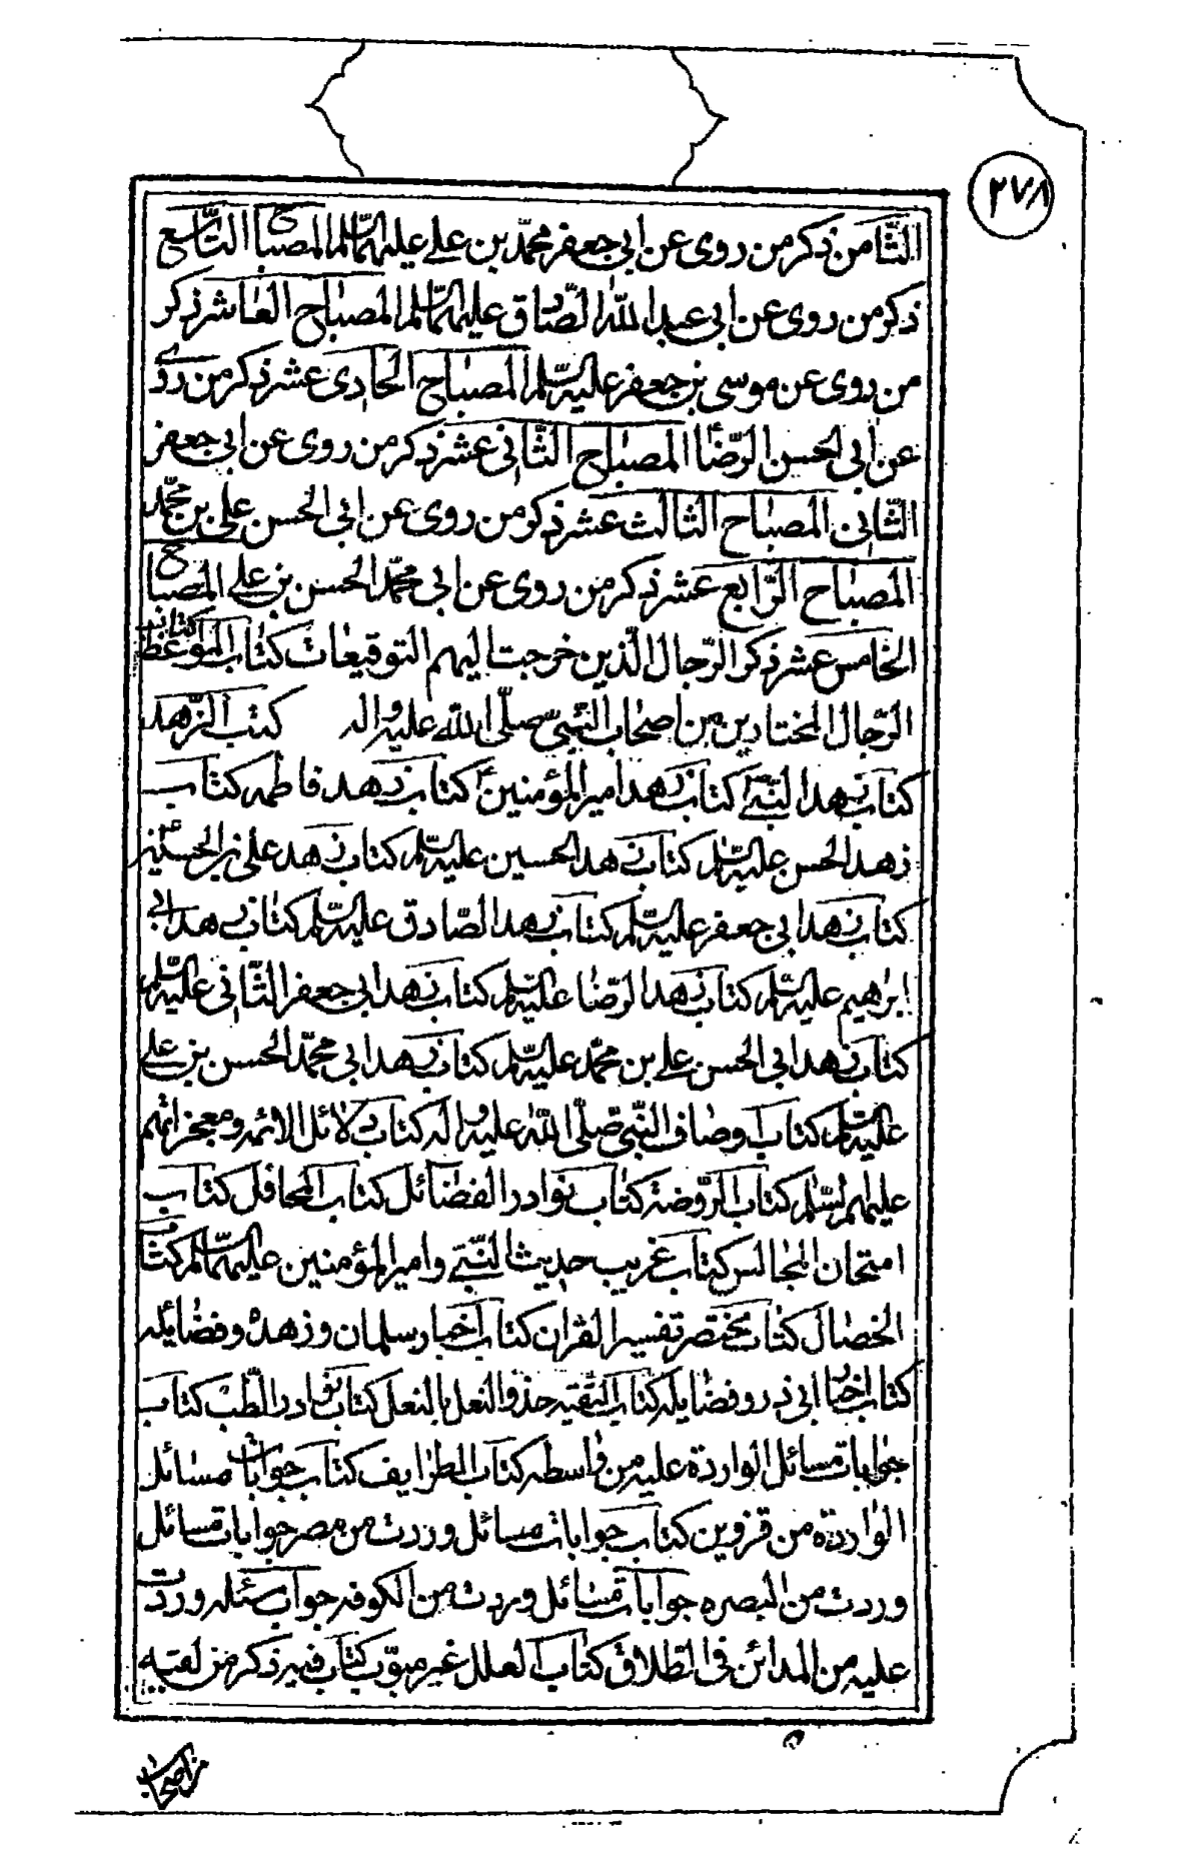 ٢٧٨
الثّامن ذكر من روى عن ابى جعفر محمّد بن علے عليهما السّلم المصباح التّاسع
ذكر من روى عن ابى عبد اللّه الصّادق عليهما السّلم المصباح العاشر ذكر
من روى عن موسى بن جعفر عليه السّلم المصباح الحادى عشر ذكر من روى
عن ابى الحسن الرّضا ع المصباح الثّانى عشر ذكر من روى عن ابى جعفر
الثّانى المصباح الثالث عشر ذكر من روى عن ابى الحسن على بن محمّد
المصباح الرّابع عشر ذكر من روى عن ابى محمّد الحسن بن علے المصباح
الخامس عشر ذكر الرّجال الّذين خرجت اليهم التوقيعات كتاب المواعظ كتاب
الرّجال المختارين من اصحاب النّبىّ صلّى اللّه عليه واله كتب الزّهد
كتاب زهد النّبىّ ص كتاب زهد امير المؤمنين ع كتاب زهد فاطمه كتاب
زهد الحسن عليه السّلم كتاب زهد الحسين عليه السّلم كتاب زهد على بن الحسين ع
كتاب زهد ابى جعفر عليه السّلم كتاب زهد الصّادق عليه السّلم كتاب زهد ابى
ابرهيم عليه السّلم كتاب زهد الرّضا عليه السّلم كتاب زهد ابى جعفر الثّانى عليه السّلم
كتاب زهد ابى الحسن علے بن محمّد عليه السّلم كتاب زهد ابى محمّد الحسن بن علے
عليه السّلم كتاب اوصاف النّبىّ صلّى اللّه عليه واله كتاب دلائل الائمه ومعجزاتهم
عليهم السّلم كتاب الرّوضة كتاب نوادر الفضائل كتاب المحافل كتاب
امتحان المجالس كتاب غريب حديث النّبىّ وامير المؤمنين عليهما السّلم كتاب
الخصال كتاب مختصر تفسير القران كتاب اخبار سلمان وزهده وفضايله
كتاب اخبار ابى ذر وفضايله كتاب التّقيه حذو النعل بالنعل كتاب نوادر الطّب كتاب
جوابات مسائل الواردة عليه من واسطه كتاب الطرايف كتاب جوابات مسائل
الواردة من قزوين كتاب جوابات مسائل وردت من مصر جوابات مسائل
وردت من البصره جوابات مسائل وردت من الكوفه جواب مسئله وردت
عليه من المدائن فى الطلاق كتاب العلل غير مبوّب كتاب فيه ذكر من لقيه
من اصحاب